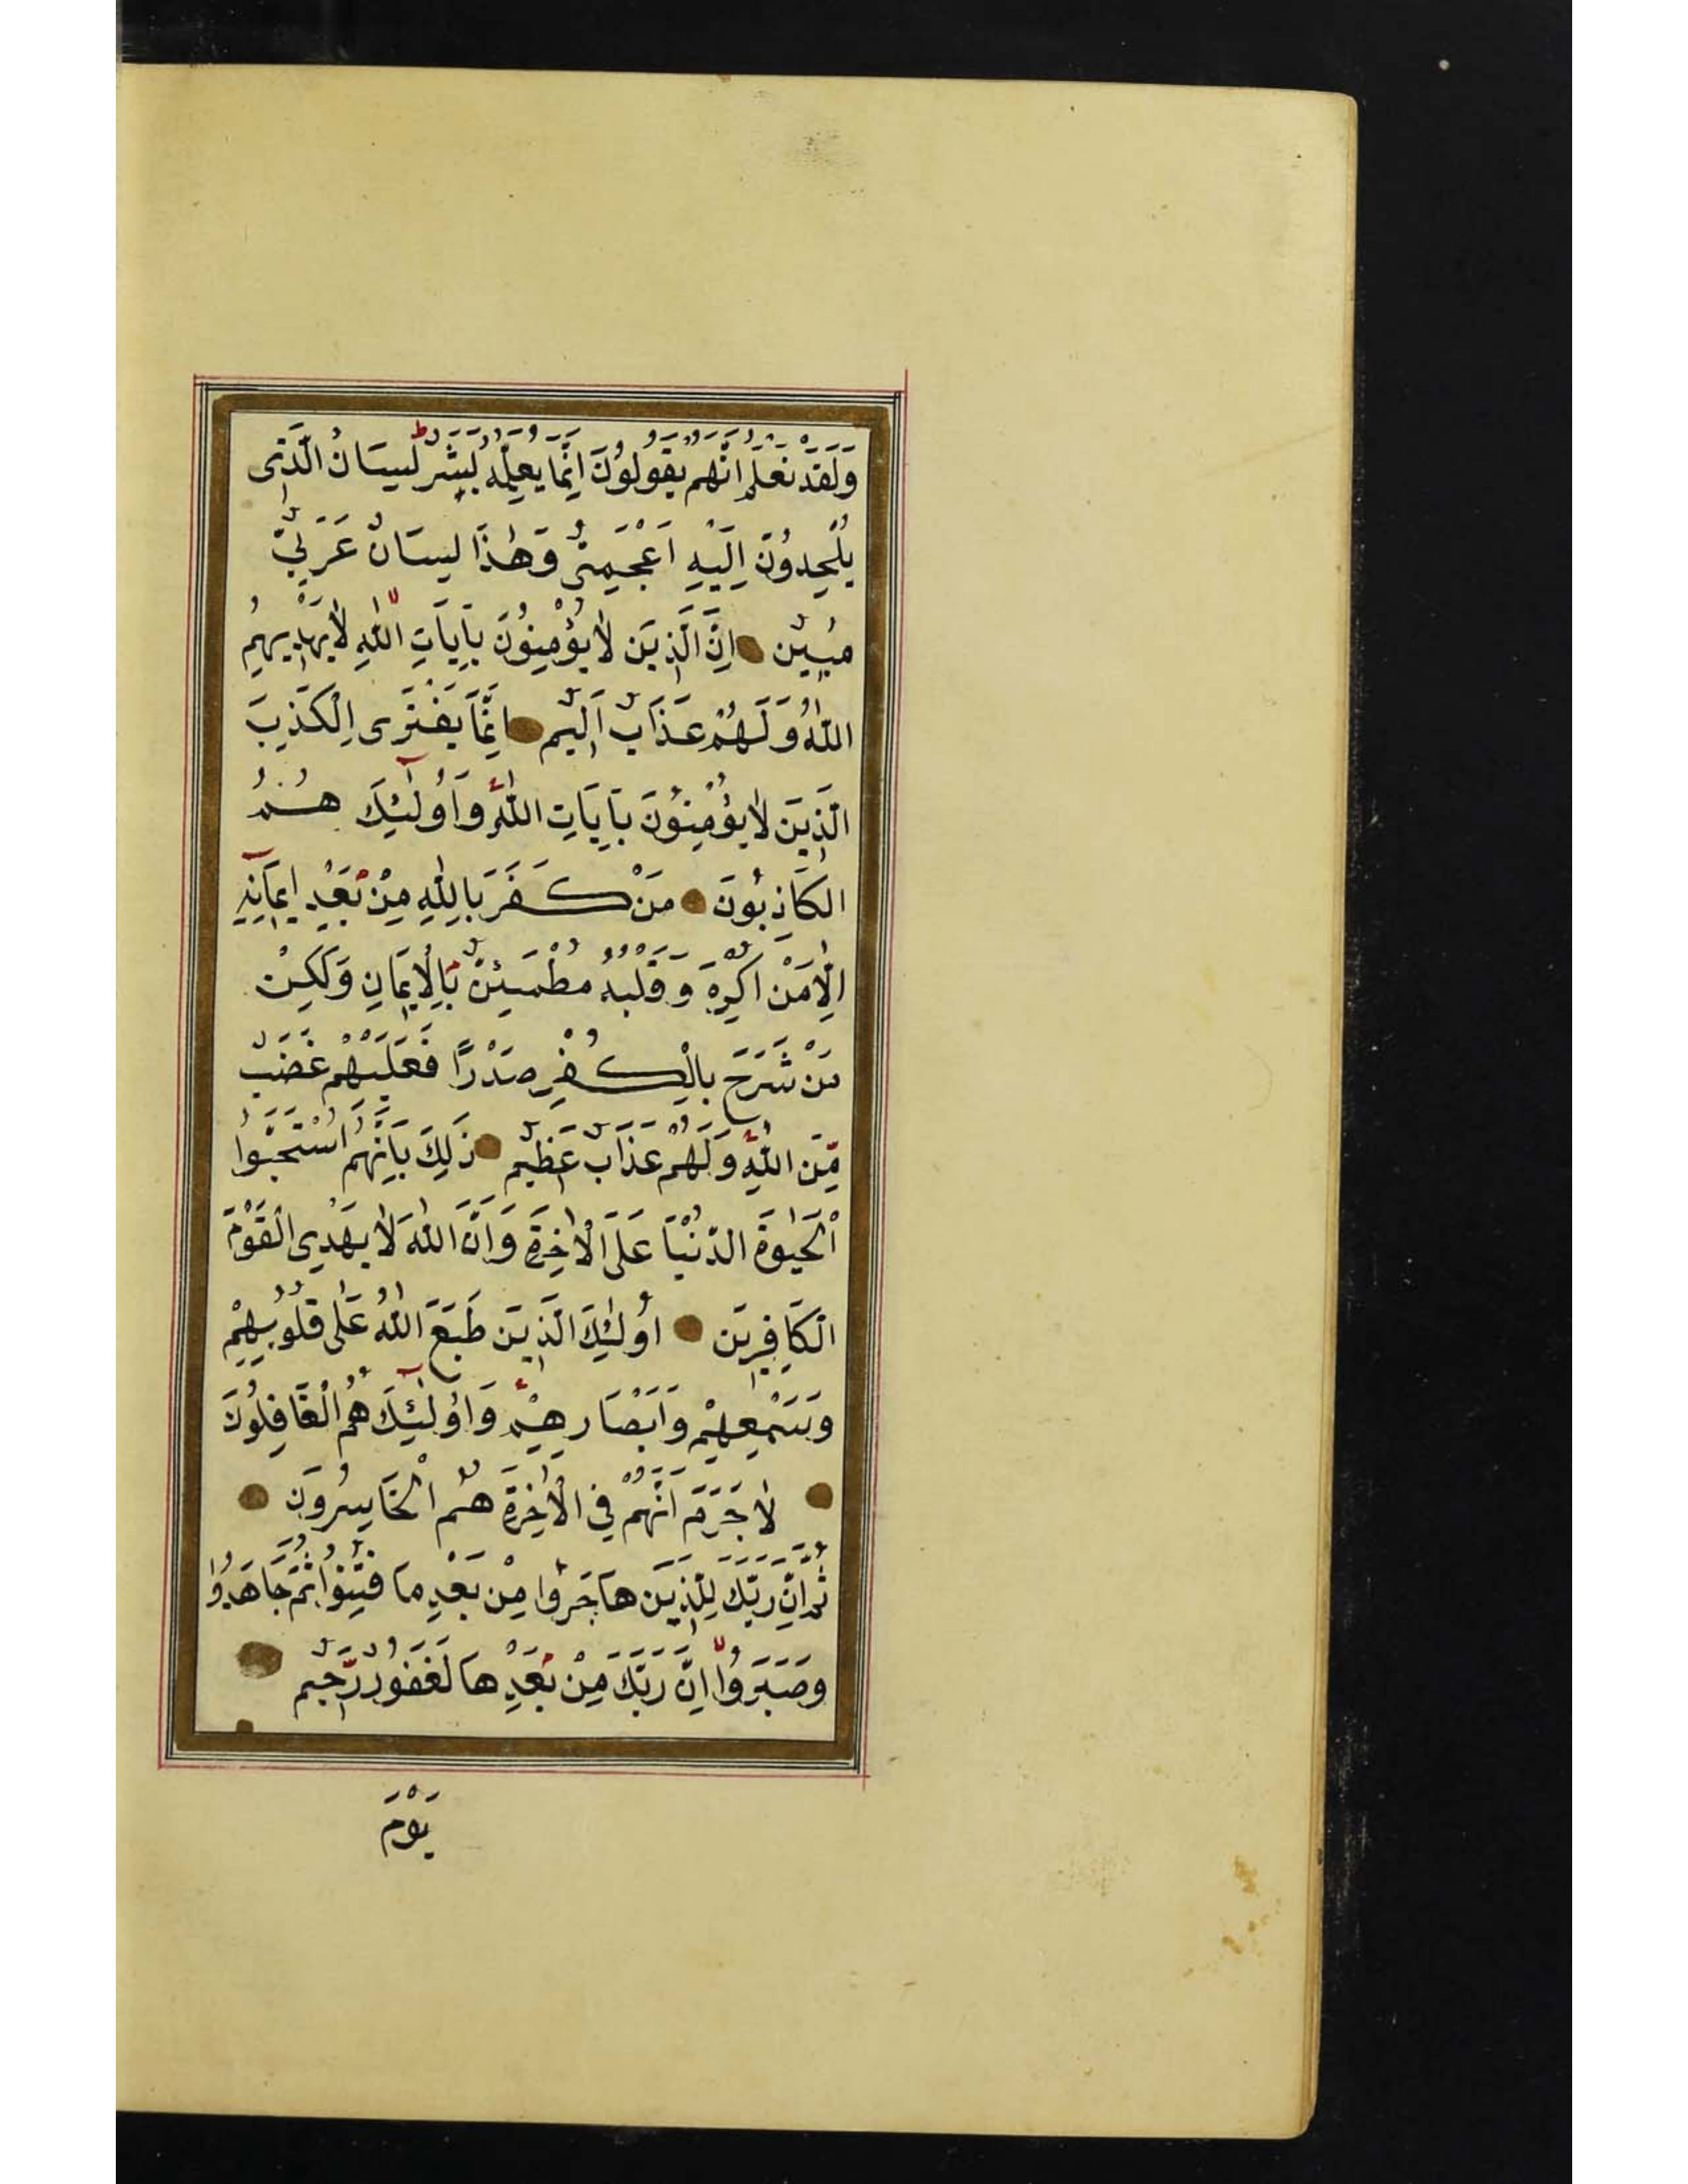 وَلَقَدْ نَعْلَمُ اَنَّهُمْ يَقُولُونَ اِنَّمَا يُعَلِّمُهُ بَشَرٌ لِسَانُ الَّذِى
يُلْحِدُونَ اِلَيْهِ اَعْجَمِىٌّ وَهٰذَا لِسَانٌ عَرَبِىٌّ
مُبِينٌ اِنَّ الَّذِينَ لَا يُؤْمِنُونَ بِاٰيَاتِ اللّٰهِ لَا يَهْدِيهِمُ
اللّٰهُ وَلَهُمْ عَذَابٌ اَلِيمٌ اِنَّمَا يَفْتَرِى الْكَذِبَ
الَّذِينَ لَا يُؤْمِنُونَ بِاٰيَاتِ اللّٰهِ وَاُولٰۤئِكَ هُمُ
الْكَاذِبُونَ مَنْ كَفَرَ بِاللّٰهِ مِنْ بَعْدِ اِيمَانِهِ
اِلَّا مَنْ اُكْرِهَ وَقَلْبُهُ مُطْمَئِنٌّ بِالْاِيمَانِ وَلٰكِنْ
مَنْ شَرَحَ بِالْكُفْرِ صَدْرًا فَعَلَيْهِمْ غَضَبٌ
مِّنَ اللّٰهِ وَلَهُمْ عَذَابٌ عَظِيمٌ ذٰلِكَ بِاَنَّهُمُ اسْتَحَبُّوا
الْحَيٰوةَ الدُّنْيَا عَلَى الْاٰخِرَةِ وَاَنَّ اللّٰهَ لَا يَهْدِى الْقَوْمَ
الْكَافِرِينَ اُولٰئِكَ الَّذِينَ طَبَعَ اللّٰهُ عَلٰى قُلُوبِهِمْ
وَسَمْعِهِمْ وَاَبْصَارِهِمْ وَاُولٰۤئِكَ هُمُ الْغَافِلُونَ
لَا جَرَمَ اَنَّهُمْ فِى الْاٰخِرَةِ هُمُ الْخَاسِرُونَ
ثُمَّ اِنَّ رَبَّكَ لِلَّذِينَ هَاجَرُوا مِنْ بَعْدِ مَا فُتِنُوا ثُمَّ جَاهَدُوا
وَصَبَرُوا اِنَّ رَبَّكَ مِنْ بَعْدِهَا لَغَفُورٌ رَّحِيمٌ
يَوْمَ